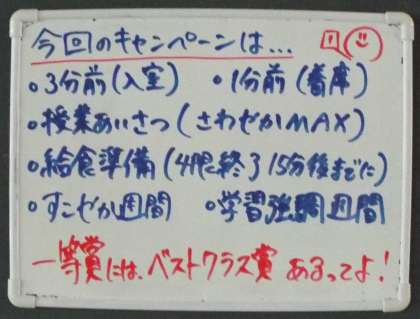 今回のキャンペーンは...
・3分前(入室) ・1分前(着席)
・授業あいさつ(さわやかMAX)
・給食準備(4限終了15分後までに)
・すこやか週間 ・学習強調週間
一等賞には、ベストクラス賞 あるってよ!